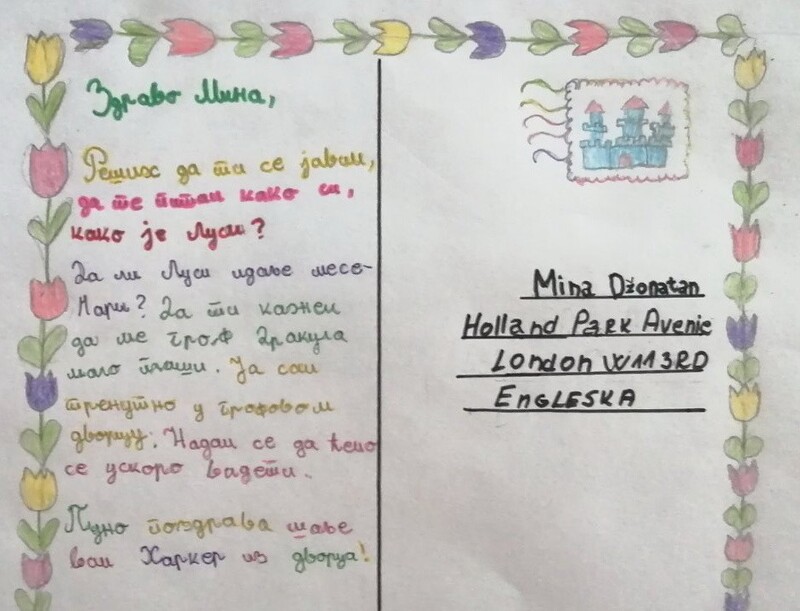 Здраво Мина,
Реших да ти се јавим,
да те питам како си,
како је Луси?
Да ли Луси идаље месе-
чари? Да ти кажем
да ме гроф Дракула
мало плаши. Ја сам
тренутно у грофовом
дворцу. Надам се да ћемо
се ускоро видети.
Пуно поздрава шаље
вам Харкер из дворца!
Mina Džonatan
Holland Park Avenie
London W113RD
ENGLESKA